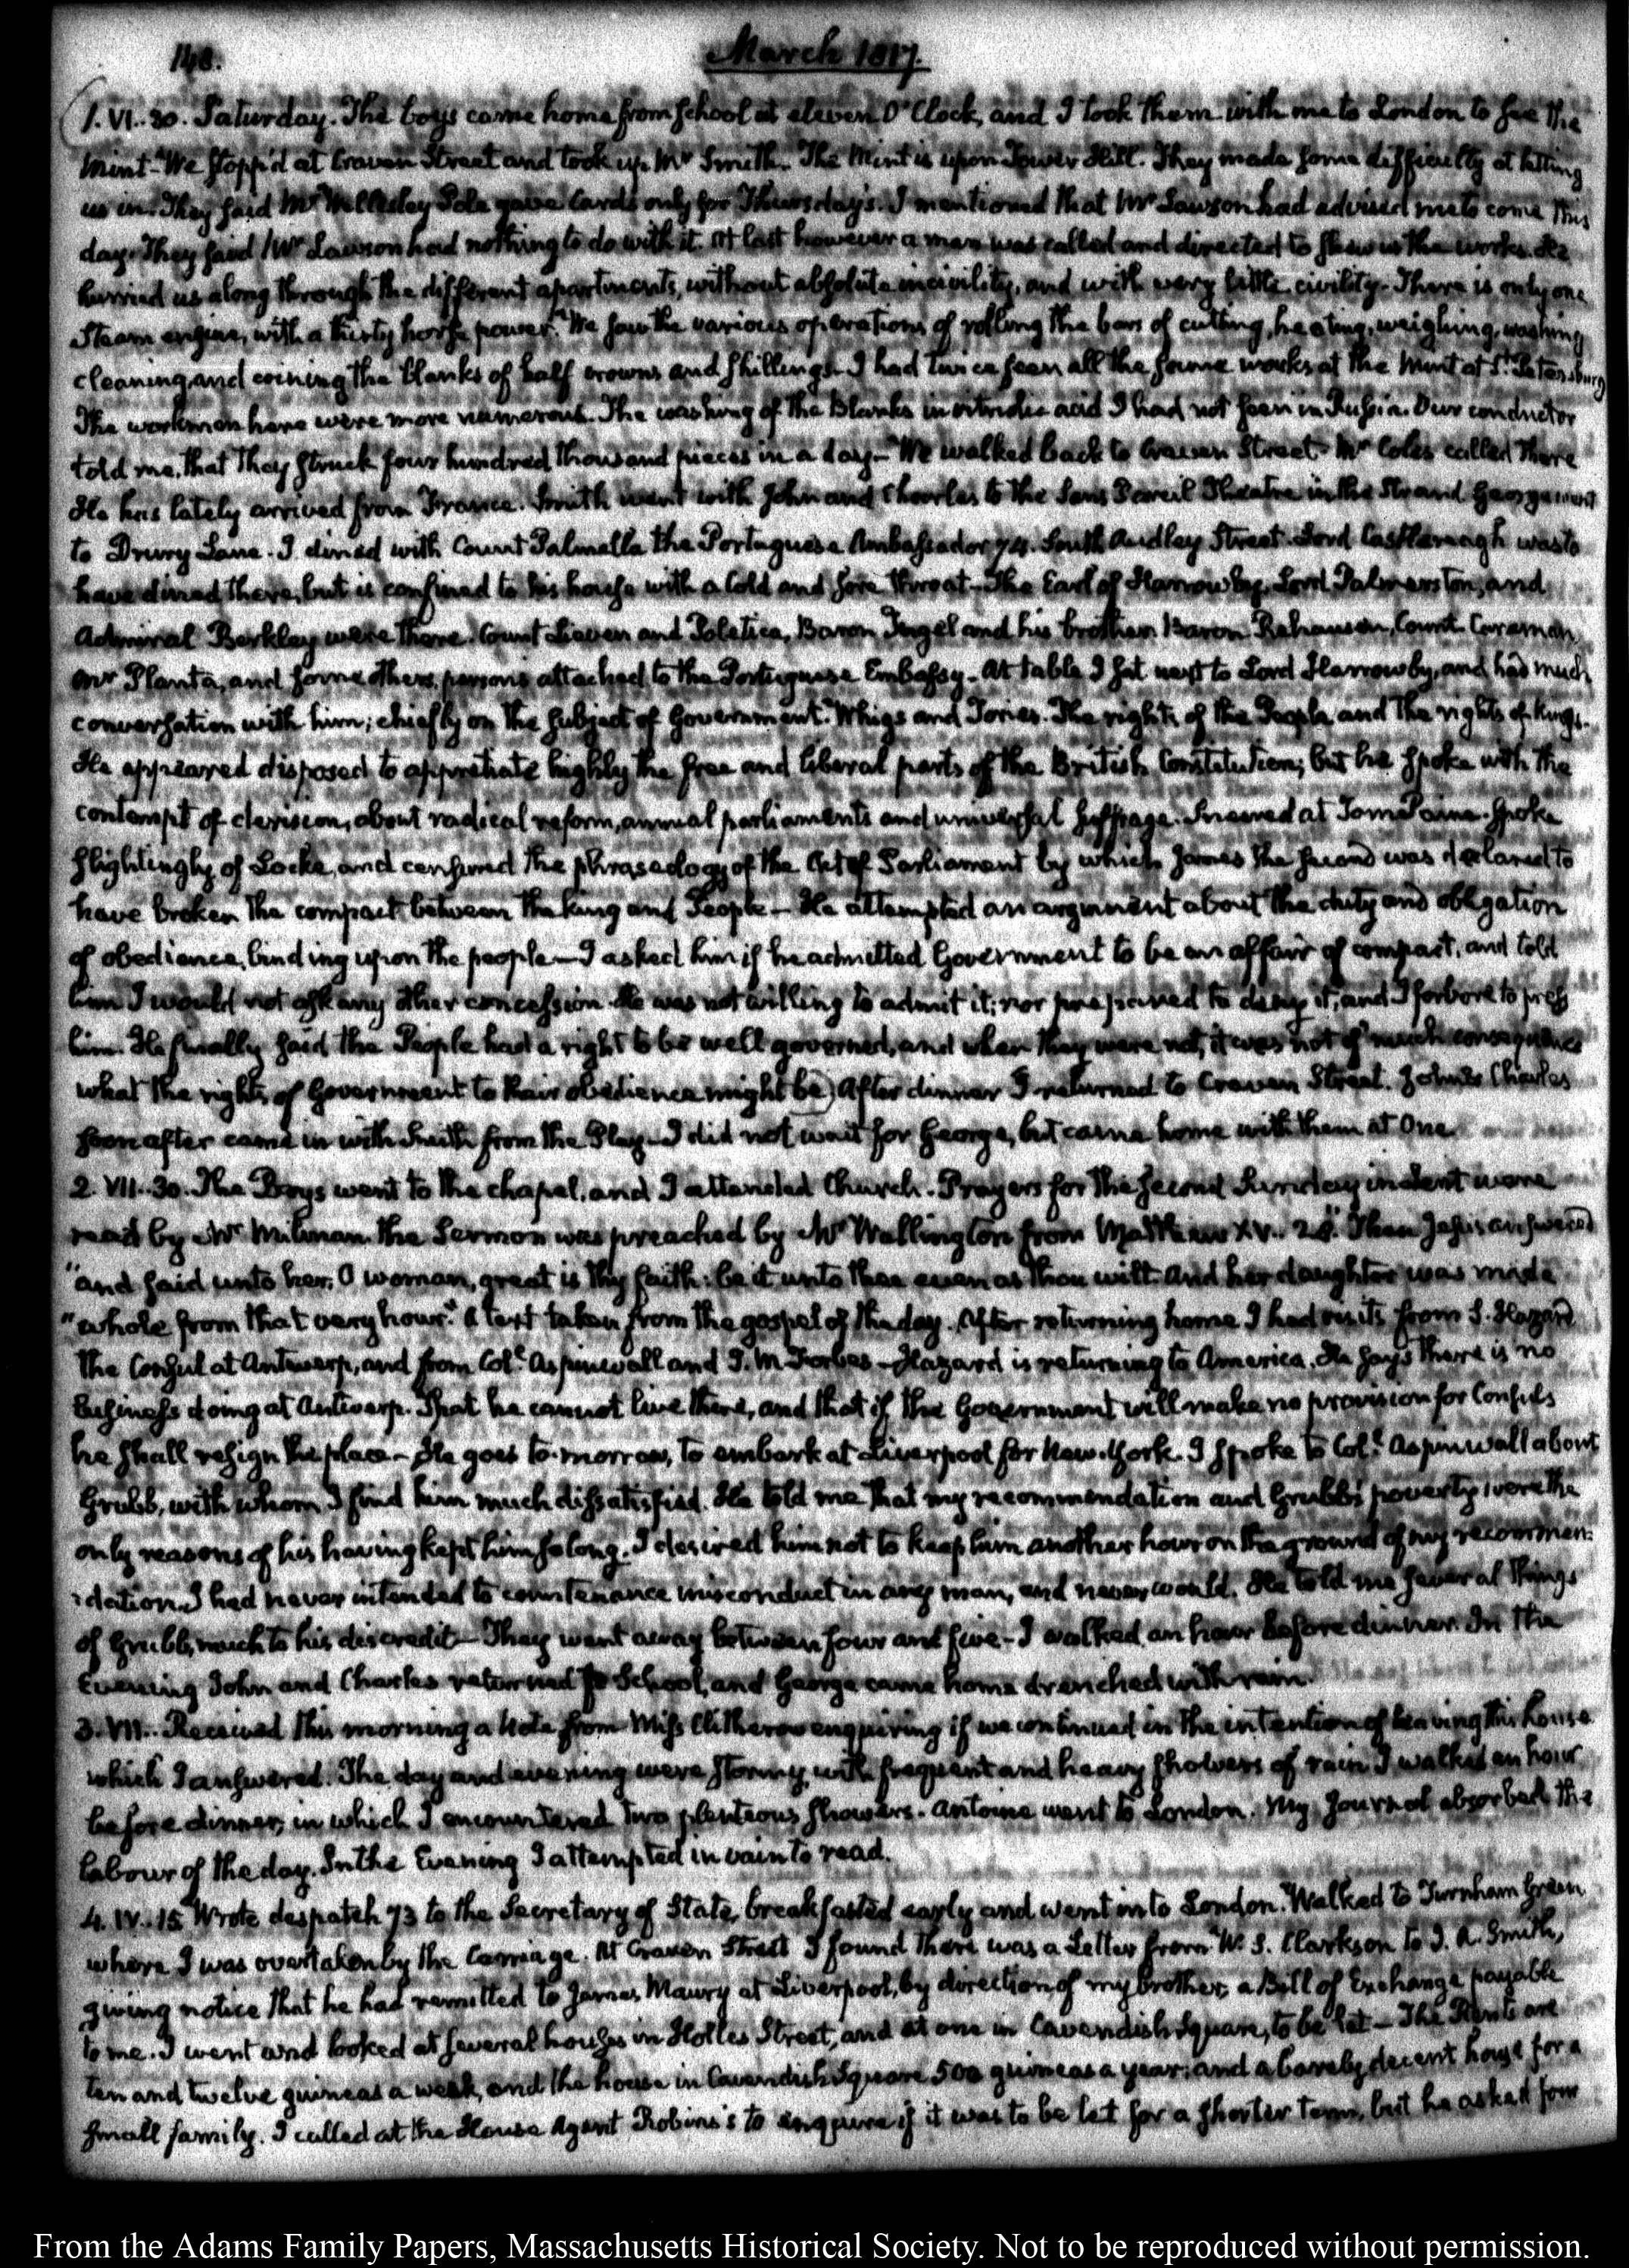 148.
March 1817.
1. VI..30. Saturday. The boys came home from school at eleven O'Clock, and I took them with me to London to see the
Mint— We stopp'd at Craven Street and took up Mr Smith— The Mint is upon Tower Hill. They made some difficulty at letting
us in. They said Mr Wellesley Pole gave Cards only for Thursday's. I mentioned that Mr Lawson had advised me to come this
day. They said Mr Lawson had nothing to do with it. At last however a man was called and directed to shew us the works. He
hurried us along through the different apartments, without absolute incivility, and with very little civility— There is only one
Steam engine, with a thirty horse power. We saw the various operations of rolling the bars of cutting, heating, weighing, washing
cleaning, and coining the blanks of half crowns and shillings— I had twice seen all the same works at the Mint at St. Petersburg
The workmen here were more numerous. The washing of the Blanks in vitriolic acid I had not seen in Russia. Our conductor
told me, that they struck four hundred thousand pieces in a day— We walked back to Craven Street— Mr Coles called there
He has lately arrived from France. Smith went with John and Charles to the Sans Pareil Theatre in the Strand. George went
to Drury Lane. I dined with Count Palmella the Portuguese Ambassador 74. South Audley Street. Lord Castlereagh was to
have dined there, but is confined to his house with a Cold and sore throat— The Earl of Harrowby, Lord Palmerston, and
Admiral Berkley were there. Count Lieven and Poletica, Baron Jngel and his brother Baron Rehausen, Count Caraman,
Mr Planta, and some others, persons attached to the Portuguese Embassy— At table I sat next to Lord Harrowby, and had much
conversation with him; chiefly on the subject of Government. Whigs and Tories. The rights of the People and the rights of Kings.
He appeared disposed to appretiate highly the free and liberal parts of the British Constitution; but he spoke with the
contempt of derision, about radical reform, annual parliaments and universal suffrage. Sneered at Tom Paine. Spoke
slightingly of Locke, and censured the phraseology of the Act of Parliament by which James the second was declared to
have broken the compact between the king and People— He attempted an argument about the duty and obligation
of obedience, binding upon the people— I asked him if he admitted Government to be an affair of compact, and told
him I would not ask any other concession. He was not willing to admit it; nor prepared to deny it; and I forbore to press
him. He finally said the People had a right to be well governed, and when they were not, it was not of much consequence
what the rights of Government to their obedience might be) After dinner I returned to Craven Street. John & Charles
soon after came in with Smith from the Play— I did not wait for George, but came home with them at One
2. VII..30. The Boys went to the chapel, and I attended Church. Prayers for the second Sunday in Lent were
read by Mr Milman. the Sermon was preached by Mr Wallington from Matthew XV.. 28. "Then Jesus answered
"and said unto her, O woman, great is thy faith: be it unto thee even as thou wilt. And her daughter was made
"whole from that very hour." A text taken from the gospel of the day. After returning home I had visits from S. Hazard
the Consul at Antwerp, and from Coll. Aspinwall and J. M. Forbes— Hazard is returning to America. He says there is no
business doing at Antwerp. That he cannot live there, and that if the Government will make no provision for Consuls
he shall resign the place— He goes to-morrow, to embark at Liverpool for New-York. I spoke to Coll. Aspinwall about
Grubb, with whom I find him much dissatisfied. He told me that my recommendation and Grubb's poverty were the
only reasons of his having kept him so long. I desired him not to keep him another hour on the ground of my recommen:
:dation. I had never intended to countenance misconduct in any man, and never would. He told me several things
of Grubb, much to his discredit— They went away between four and five— I walked an hour before dinner. In the
Evening John and Charles returned to School, and George came home drenched with rain.
3. VII.. Received this morning a Note from Miss Clitherow enquiring if we continued in the intention of leaving this house
which I answered. The day and evening were stormy, with frequent and heavy showers of rain. I walked an hour
before dinner, in which I encountered two plenteous showers. Antoine went to London. My Journal absorbed the
labour of the day. In the Evening I attempted in vain to read.
4. IV..15 Wrote despatch 73 to the Secretary of State, breakfasted early and went into London. Walked to Turnham Green
where I was overtaken by the Carriage. At Craven Street I found there was a Letter from W. S. Clarkson to J. A. Smith,
giving notice that he had remitted to James Maury at Liverpool, by direction of my brother, a Bill of Exchange payable
to me. I went and looked at several houses in Holles Street, and at one in Cavendish Square, to be let— The Rents are
ten and twelve guineas a week, and the house in Cavendish Square 500 guineas a year; and a barely decent house for a
small family. I called at the House Agent Robins's to enquire if it was to be let for a shorter term, but he asked four
From the Adams Family Papers, Massachusetts Historical Society. Not to be reproduced without permission.